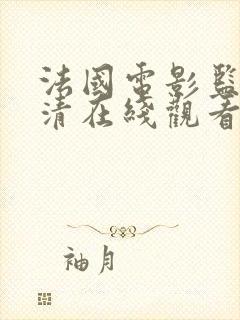 法國電影監
清在綫觀看
袖月